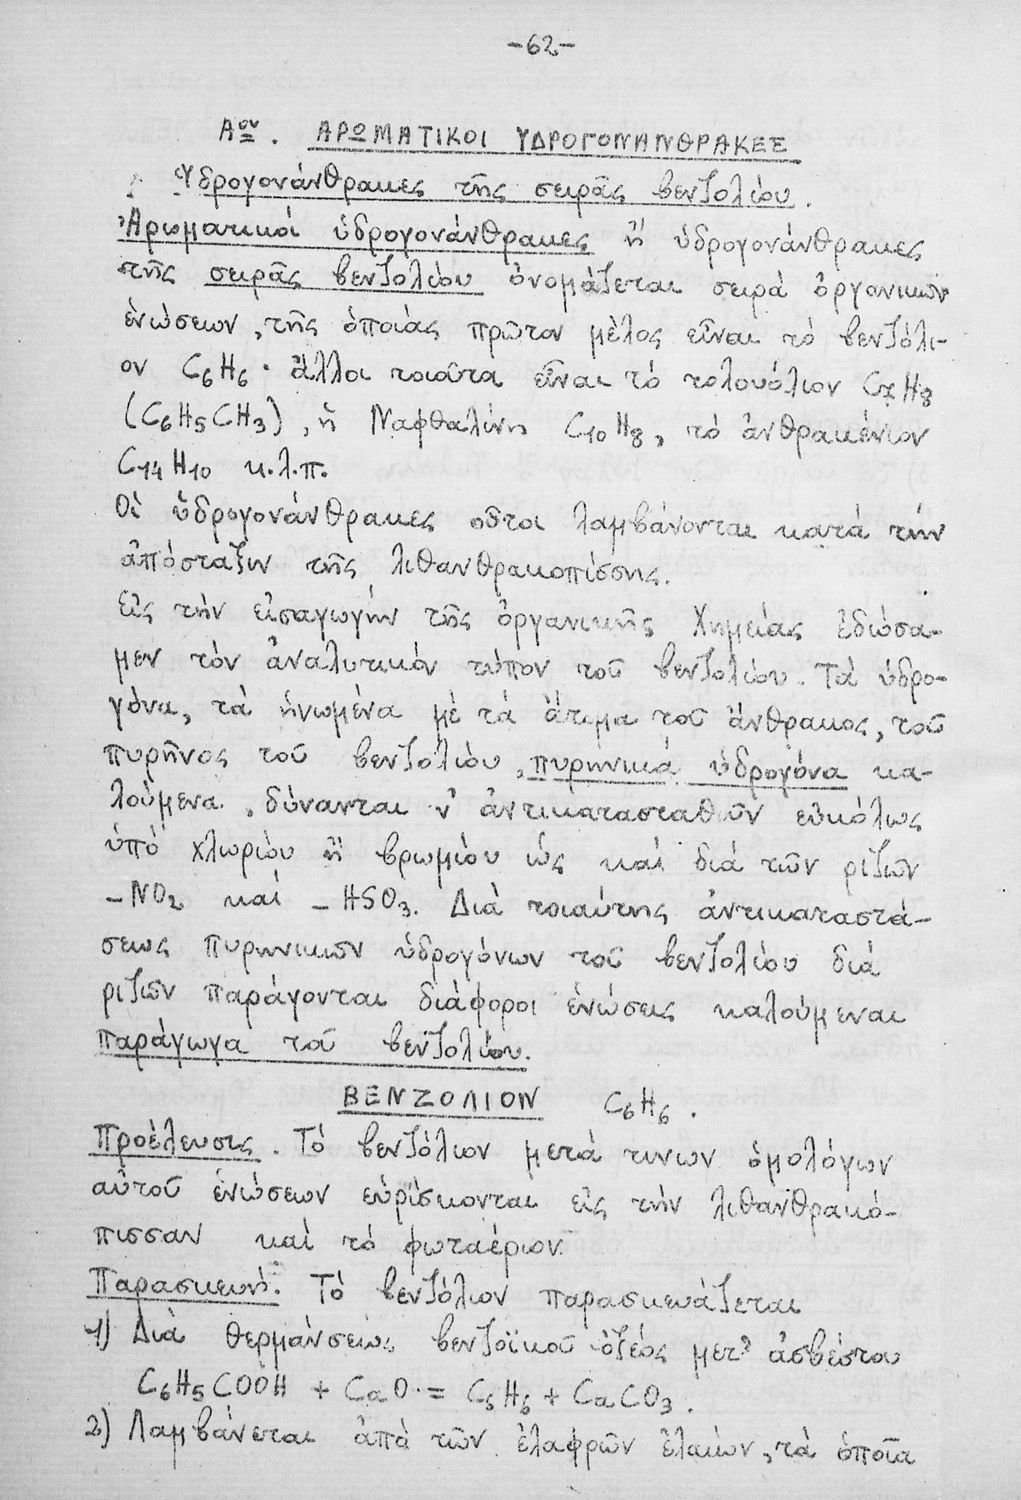 -62-
Αον. ΑΡΩΜΑΤΙΚΟΙ ΥΔΡΟΓΟΝΑΝΘΡΑΚΕΣ
Ὑδρογονάνθρακες τῆς σειρᾶς βενζολίου.
Ἀρωματικοί ὑδρογονάνθρακες ἤ ὑδρογονάνθρακες
τῆς σειρᾶς βενζολίου ὀνομάζεται σειρά ὀργανικῶν
ἑνώσεων, τῆς ὁποίας πρῶτον μέλος εἶναι τό βενζόλι-
ον C₆H₆· ἄλλοι τοιαῦτα εἶναι τό τολουόλιον C₇H₈
(C₆H₅CH₃), ἡ Ναφθαλίνη C₁₀H₈, τό ἀνθρακένιον
C₁₄H₁₀ κ.λ.π.
Οἱ ὑδρογονάνθρακες οὗτοι λαμβάνονται κατά τήν
ἀπόσταξιν τῆς λιθανθρακοπίσσης.
Εἰς τήν εἰσαγωγήν τῆς ὀργανικῆς Χημείας ἐδώσα-
μεν τόν ἀναλυτικόν τύπον τοῦ βενζολίου. Τά ὑδρο-
γόνα, τά ἡνωμένα μέ τά ἄτομα τοῦ ἄνθρακος, τοῦ
πυρῆνος τοῦ βενζολίου, πυρηνικά ὑδρογόνα κα-
λούμενα, δύνανται ν' ἀντικατασταθοῦν εὐκόλως
ὑπό χλωρίου ἤ βρωμίου ὡς καί διά τῶν ριζῶν
-NO₂ καί -HSO₃. Διά τοιαύτης ἀντικαταστά-
σεως πυρηνικῶν ὑδρογόνων τοῦ βενζολίου διά
ριζῶν παράγονται διάφοροι ἑνώσεις καλούμεναι
παράγωγα τοῦ βενζολίου.
ΒΕΝΖΟΛΙΟΝ C₆H₆.
Προέλευσις. Τό βενζόλιον μετά τινων ὁμολόγων
αὐτοῦ ἑνώσεων εὑρίσκονται εἰς τήν λιθανθρακό-
πισσαν καί τό φωταέριον.
Παρασκευή. Τό βενζόλιον παρασκευάζεται
1) Διά θερμάνσεως βενζοϊκοῦ ὀξέος μετ' ἀσβέστου
C₆H₅COOH + CaO = C₆H₆ + CaCO₃.
2) Λαμβάνεται ἀπό τῶν ἐλαφρῶν ἐλαίων, τά ὁποῖα